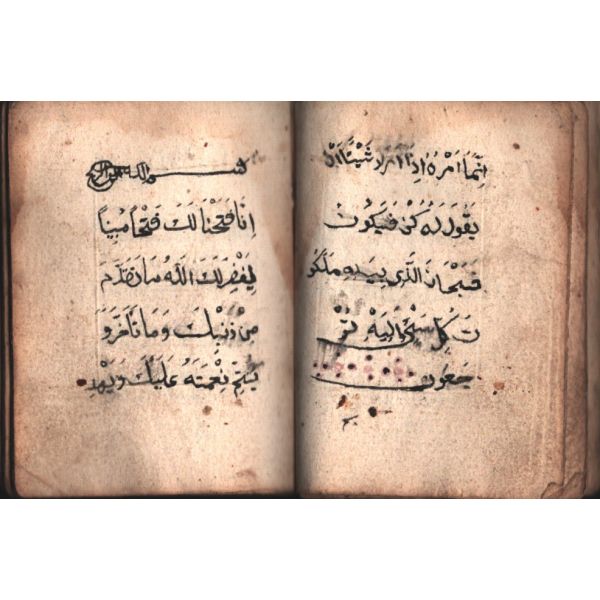 اِنَّمَا اَمْرُهُ اِذَا اَرَادَ شَيْئًا اَنْ
يَقُولَ لَهُ كُنْ فَيَكُونُ
فَسُبْحَانَ الَّذِي بِيَدِهِ مَلَكُو
تُ كُلِّ شَيْءٍ وَاِلَيْهِ تُرْ
جَعُونَ
بسم الله الرحمن الرحيم
اِنَّا فَتَحْنَا لَكَ فَتْحًا مُبِينًا
لِيَغْفِرَ لَكَ اللّٰهُ مَا تَقَدَّمَ
مِنْ ذَنْبِكَ وَمَا تَاَخَّرَ وَ
يُتِمَّ نِعْمَتَهُ عَلَيْكَ وَيَهْدِ